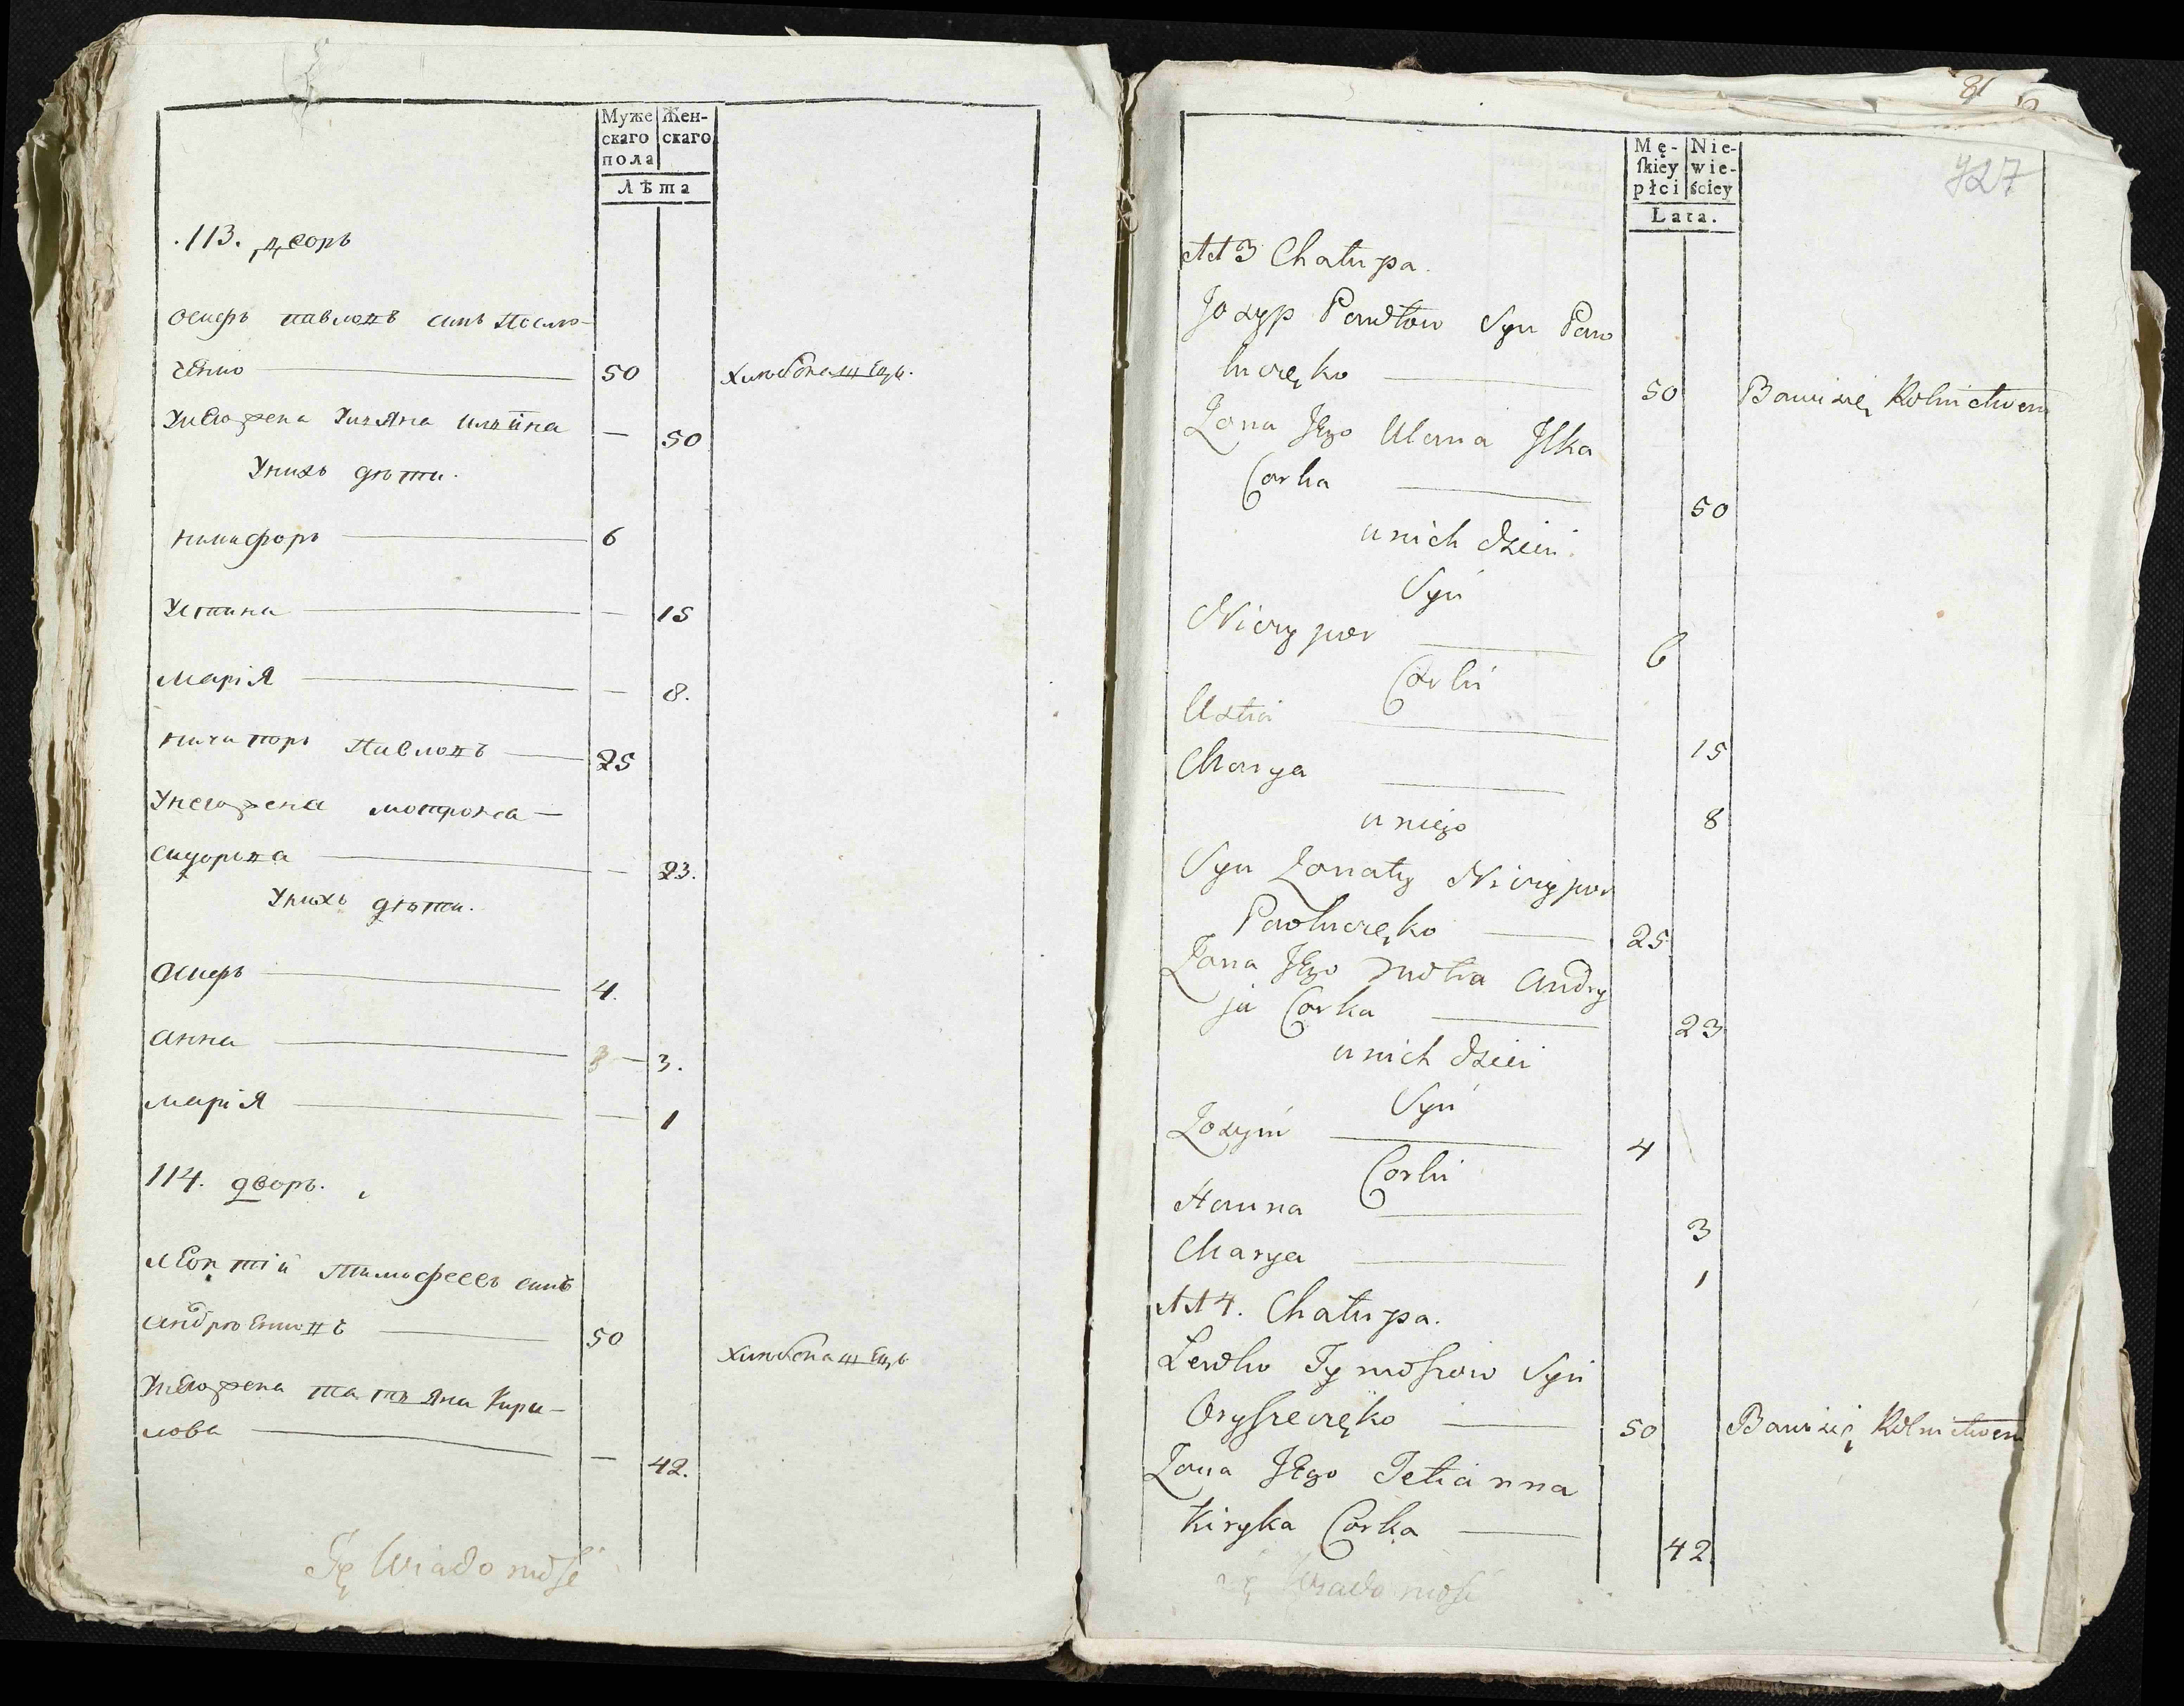 Муже
скаго
пола
Жен-
скаго
Лѣта
.113. дворъ
Осифъ павловъ синъ Павлю-
ченко 50 хлѣбопашецъ.
Унего жена Уляна илїина — 50
Унихъ дѣти.
никифоръ 6
Устина — 15
Марія — 8.
ничипоръ павловъ 25
Унего жена мотрона —
сидорова — 23.
Унихъ дѣти.
Осифъ 4.
Анна — 3.
Марія — 1
114. дворъ.
Леонтїй тимофеевъ синъ
50 хлѣбопашецъ
Унего жена татьяна Кири-
лова — 42.
Tę Wiadomość
81
727
Mę-
ſkiey
płci
Nie-
wie-
ściey
Lata.
113 Chałupa.
Jozyp Pawłow Syn Paw
luczęko 50 Bawi się Rolnictwem
Żona Jego Ulana Jlka
Corka 50
u nich dzieci
Syn
Niczypor 6
Corki
Ustia 15
Marya 8
u niego
Syn Żonaty Niczypor
Pawluczęko 25
Żona Jego Motra Andry
ja Corka 23
u nich dzieci
Syn
Jozyp 4
Corki
Hanna 3
Marya 1
114. Chałupa.
Lewko Tymoszow Syn
50 Bawi się Rolnictwem
Żona Jego Tetianna
Kiryka Corka 42
Tę Wiadomość